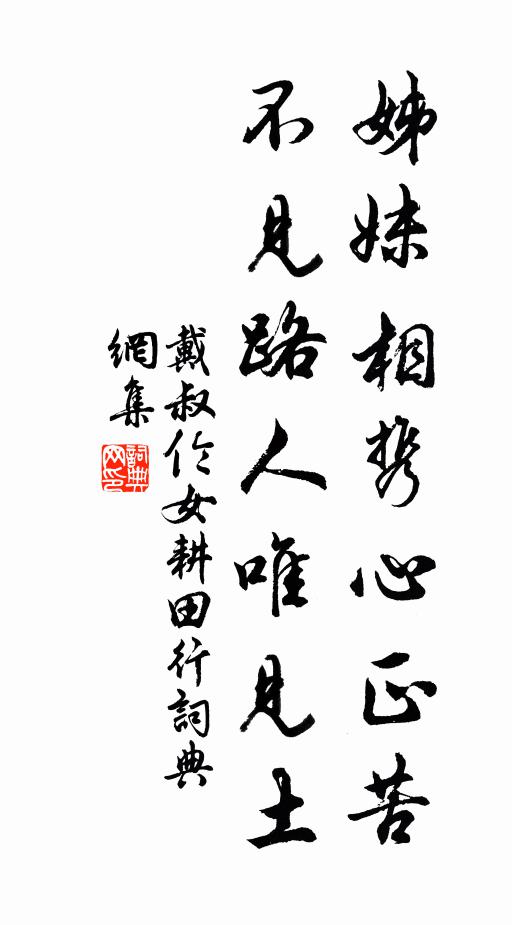 姊妹相携心正苦
不見路人唯見土
戴叔伦女耕田行詞典
網集
詞典
网印